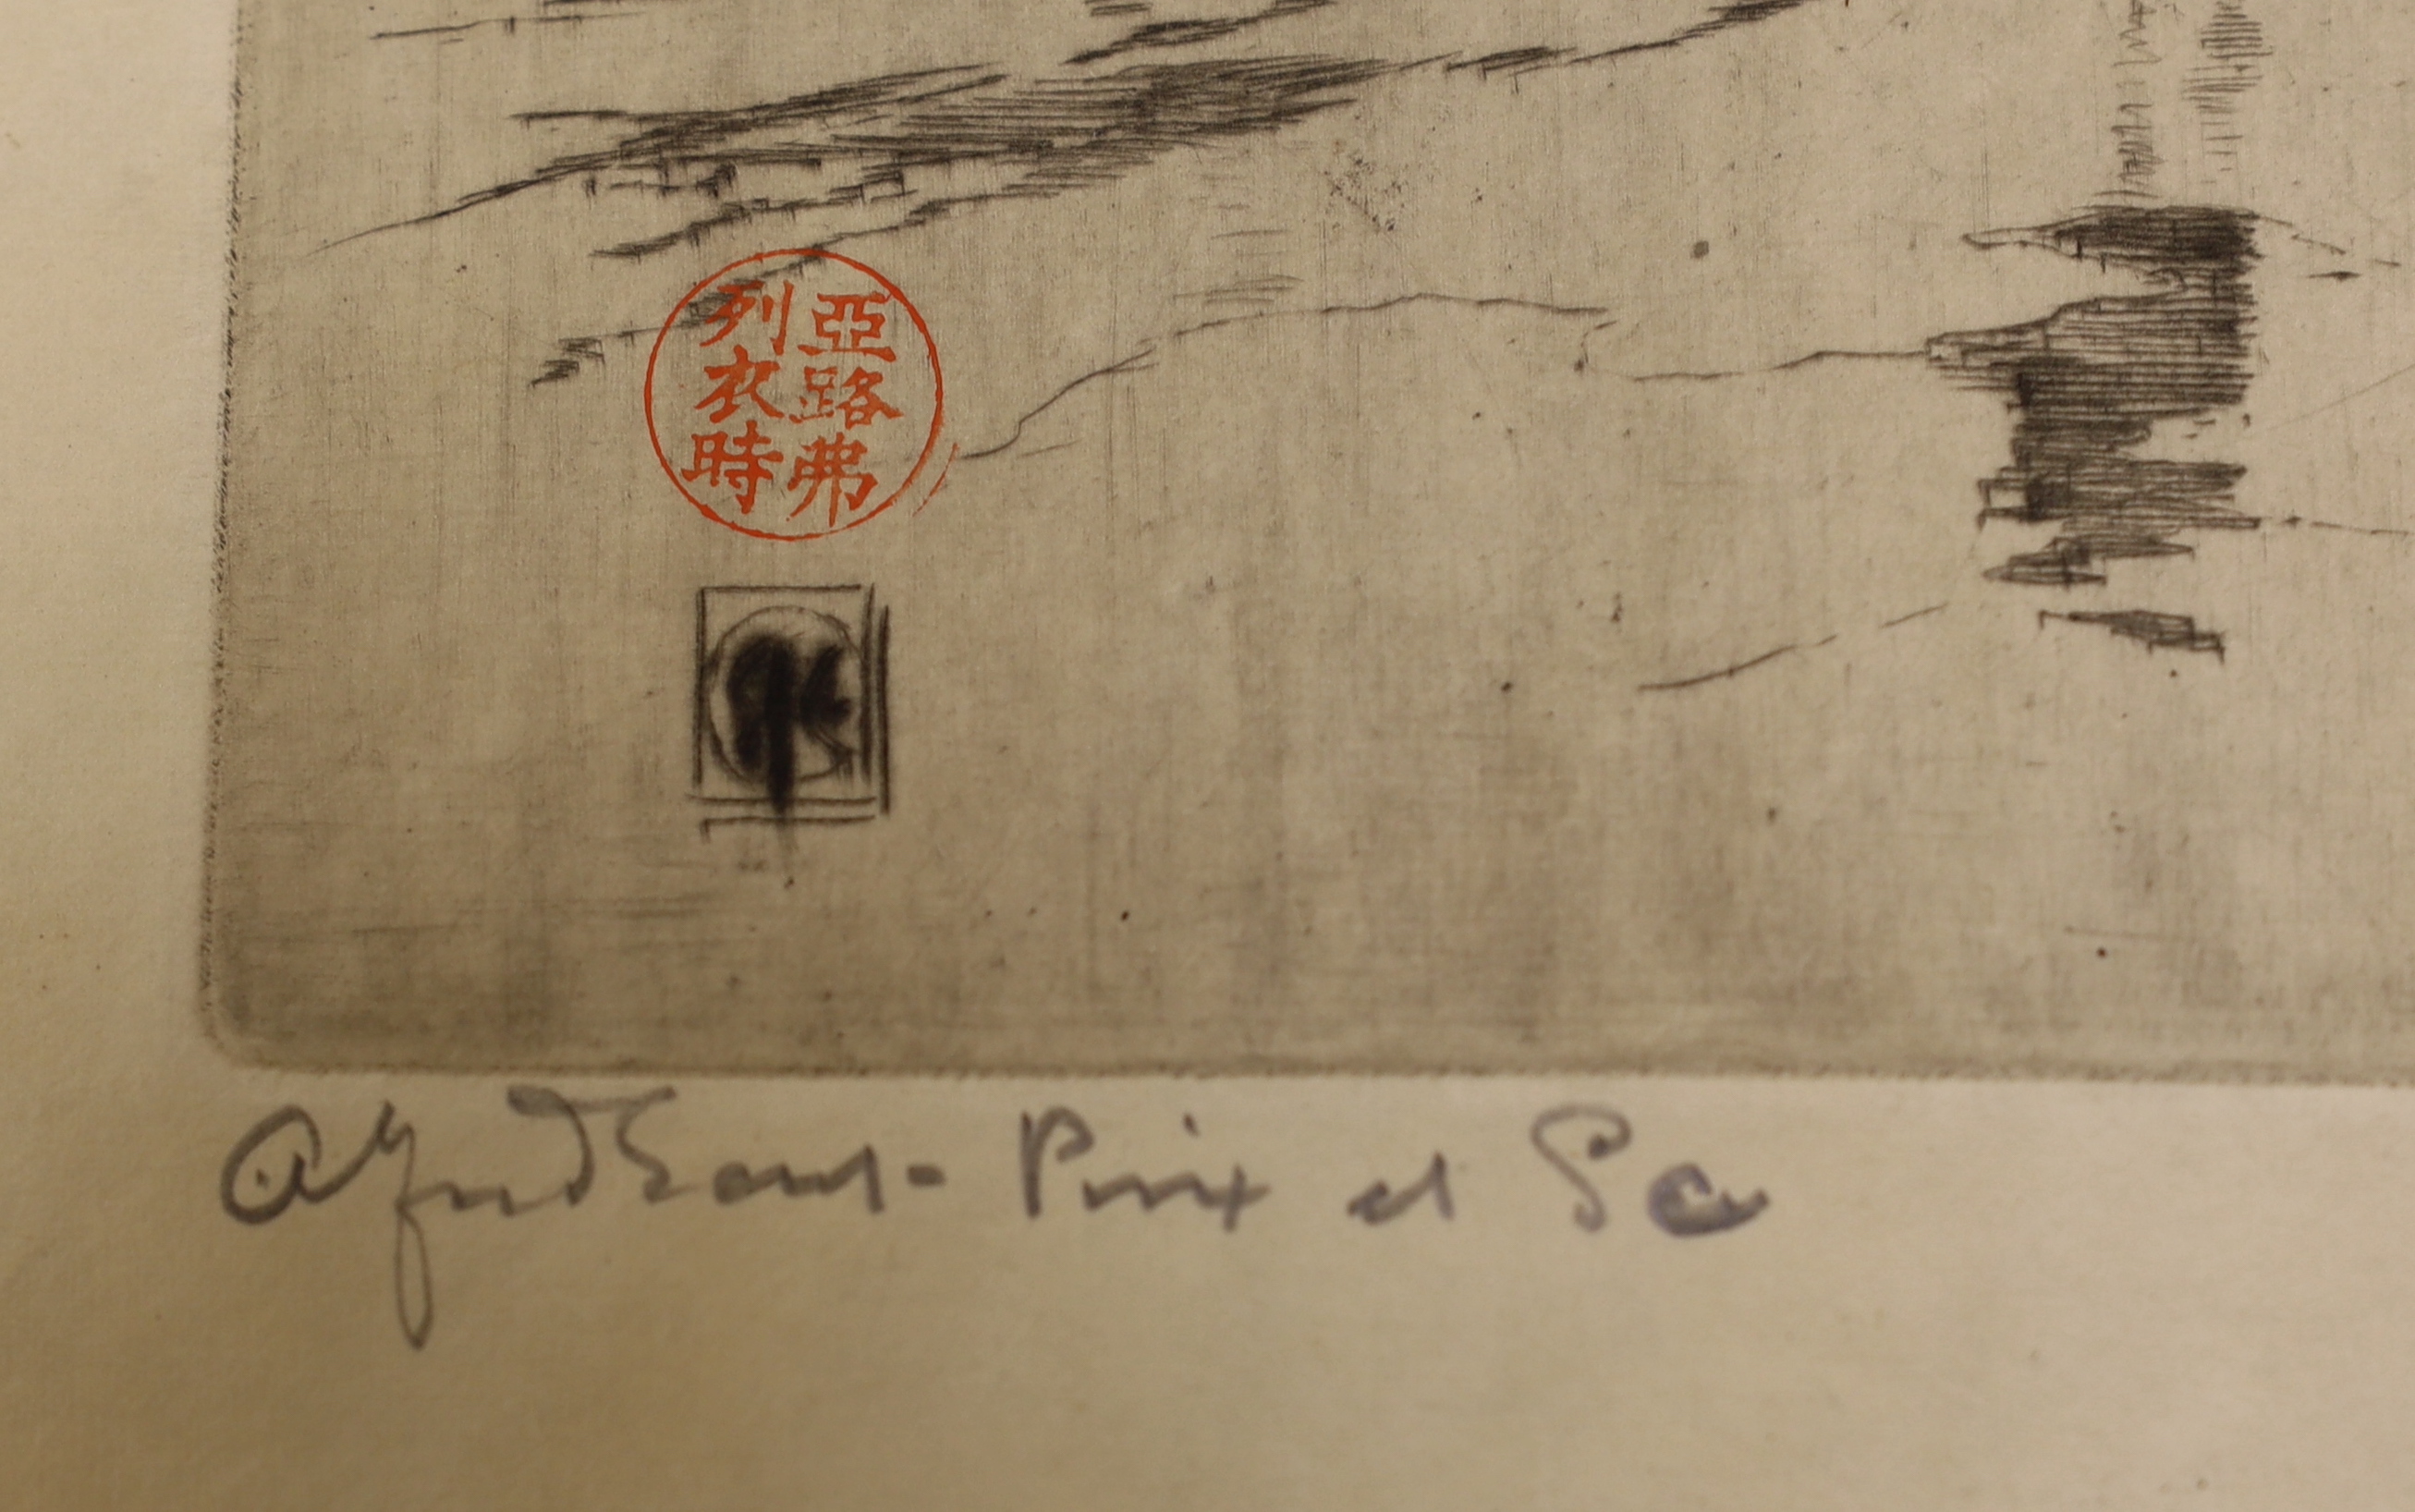 亞路弗
列衣時
Alfred East - Pinx et Sc